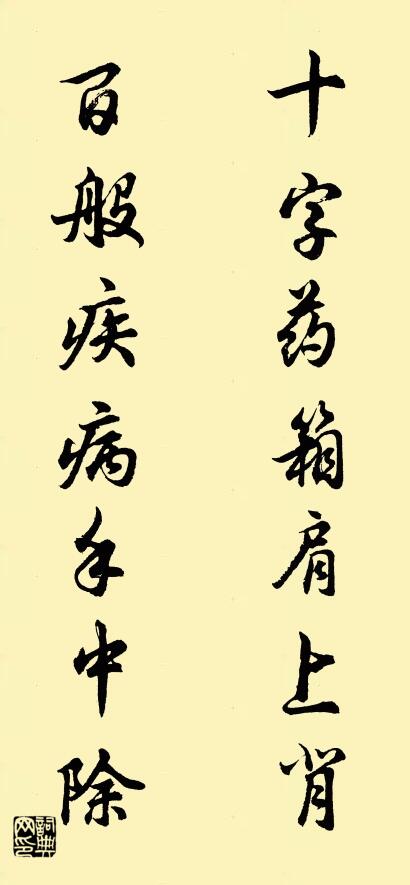 十字药箱肩上背
百般疾病手中除
詞典网印